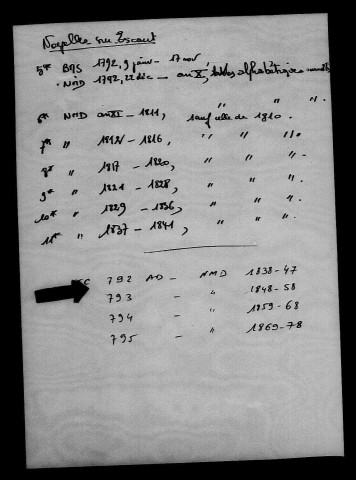 Noyelles sur Escaut
5e* BMS 1792, 9 janv - 17 nov
. NMD 1792, 22 déc - an X, tables alphabétiques annuelles
6e* NMD an XI - 1811, sauf celle de 1810.
7e* " 1812 - 1816, " " ".
8e* " 1817 - 1820, " " ".
9e* " 1821 - 1828, " " ".
10e* " 1829 - 1836, " " ".
11e* " 1837 - 1841, " " ".
792 AD - NMD 1838-47
793 - " 1848-58
794 - " 1859-68
795 - " 1869-78